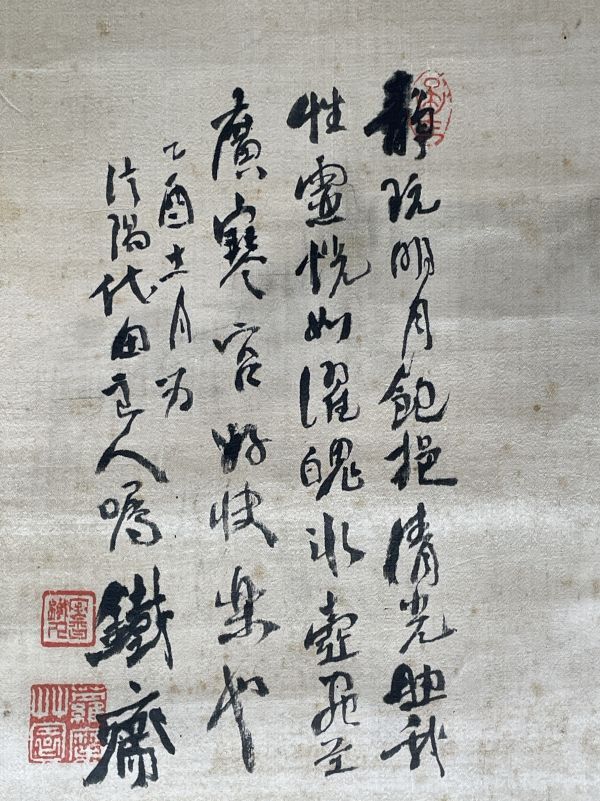 靜玩明月飽挹清光映我
性靈恍如濯魄冰壺
廣寒宮好快樂也
乙酉十一月為
陽代田人嘱
鐵齋